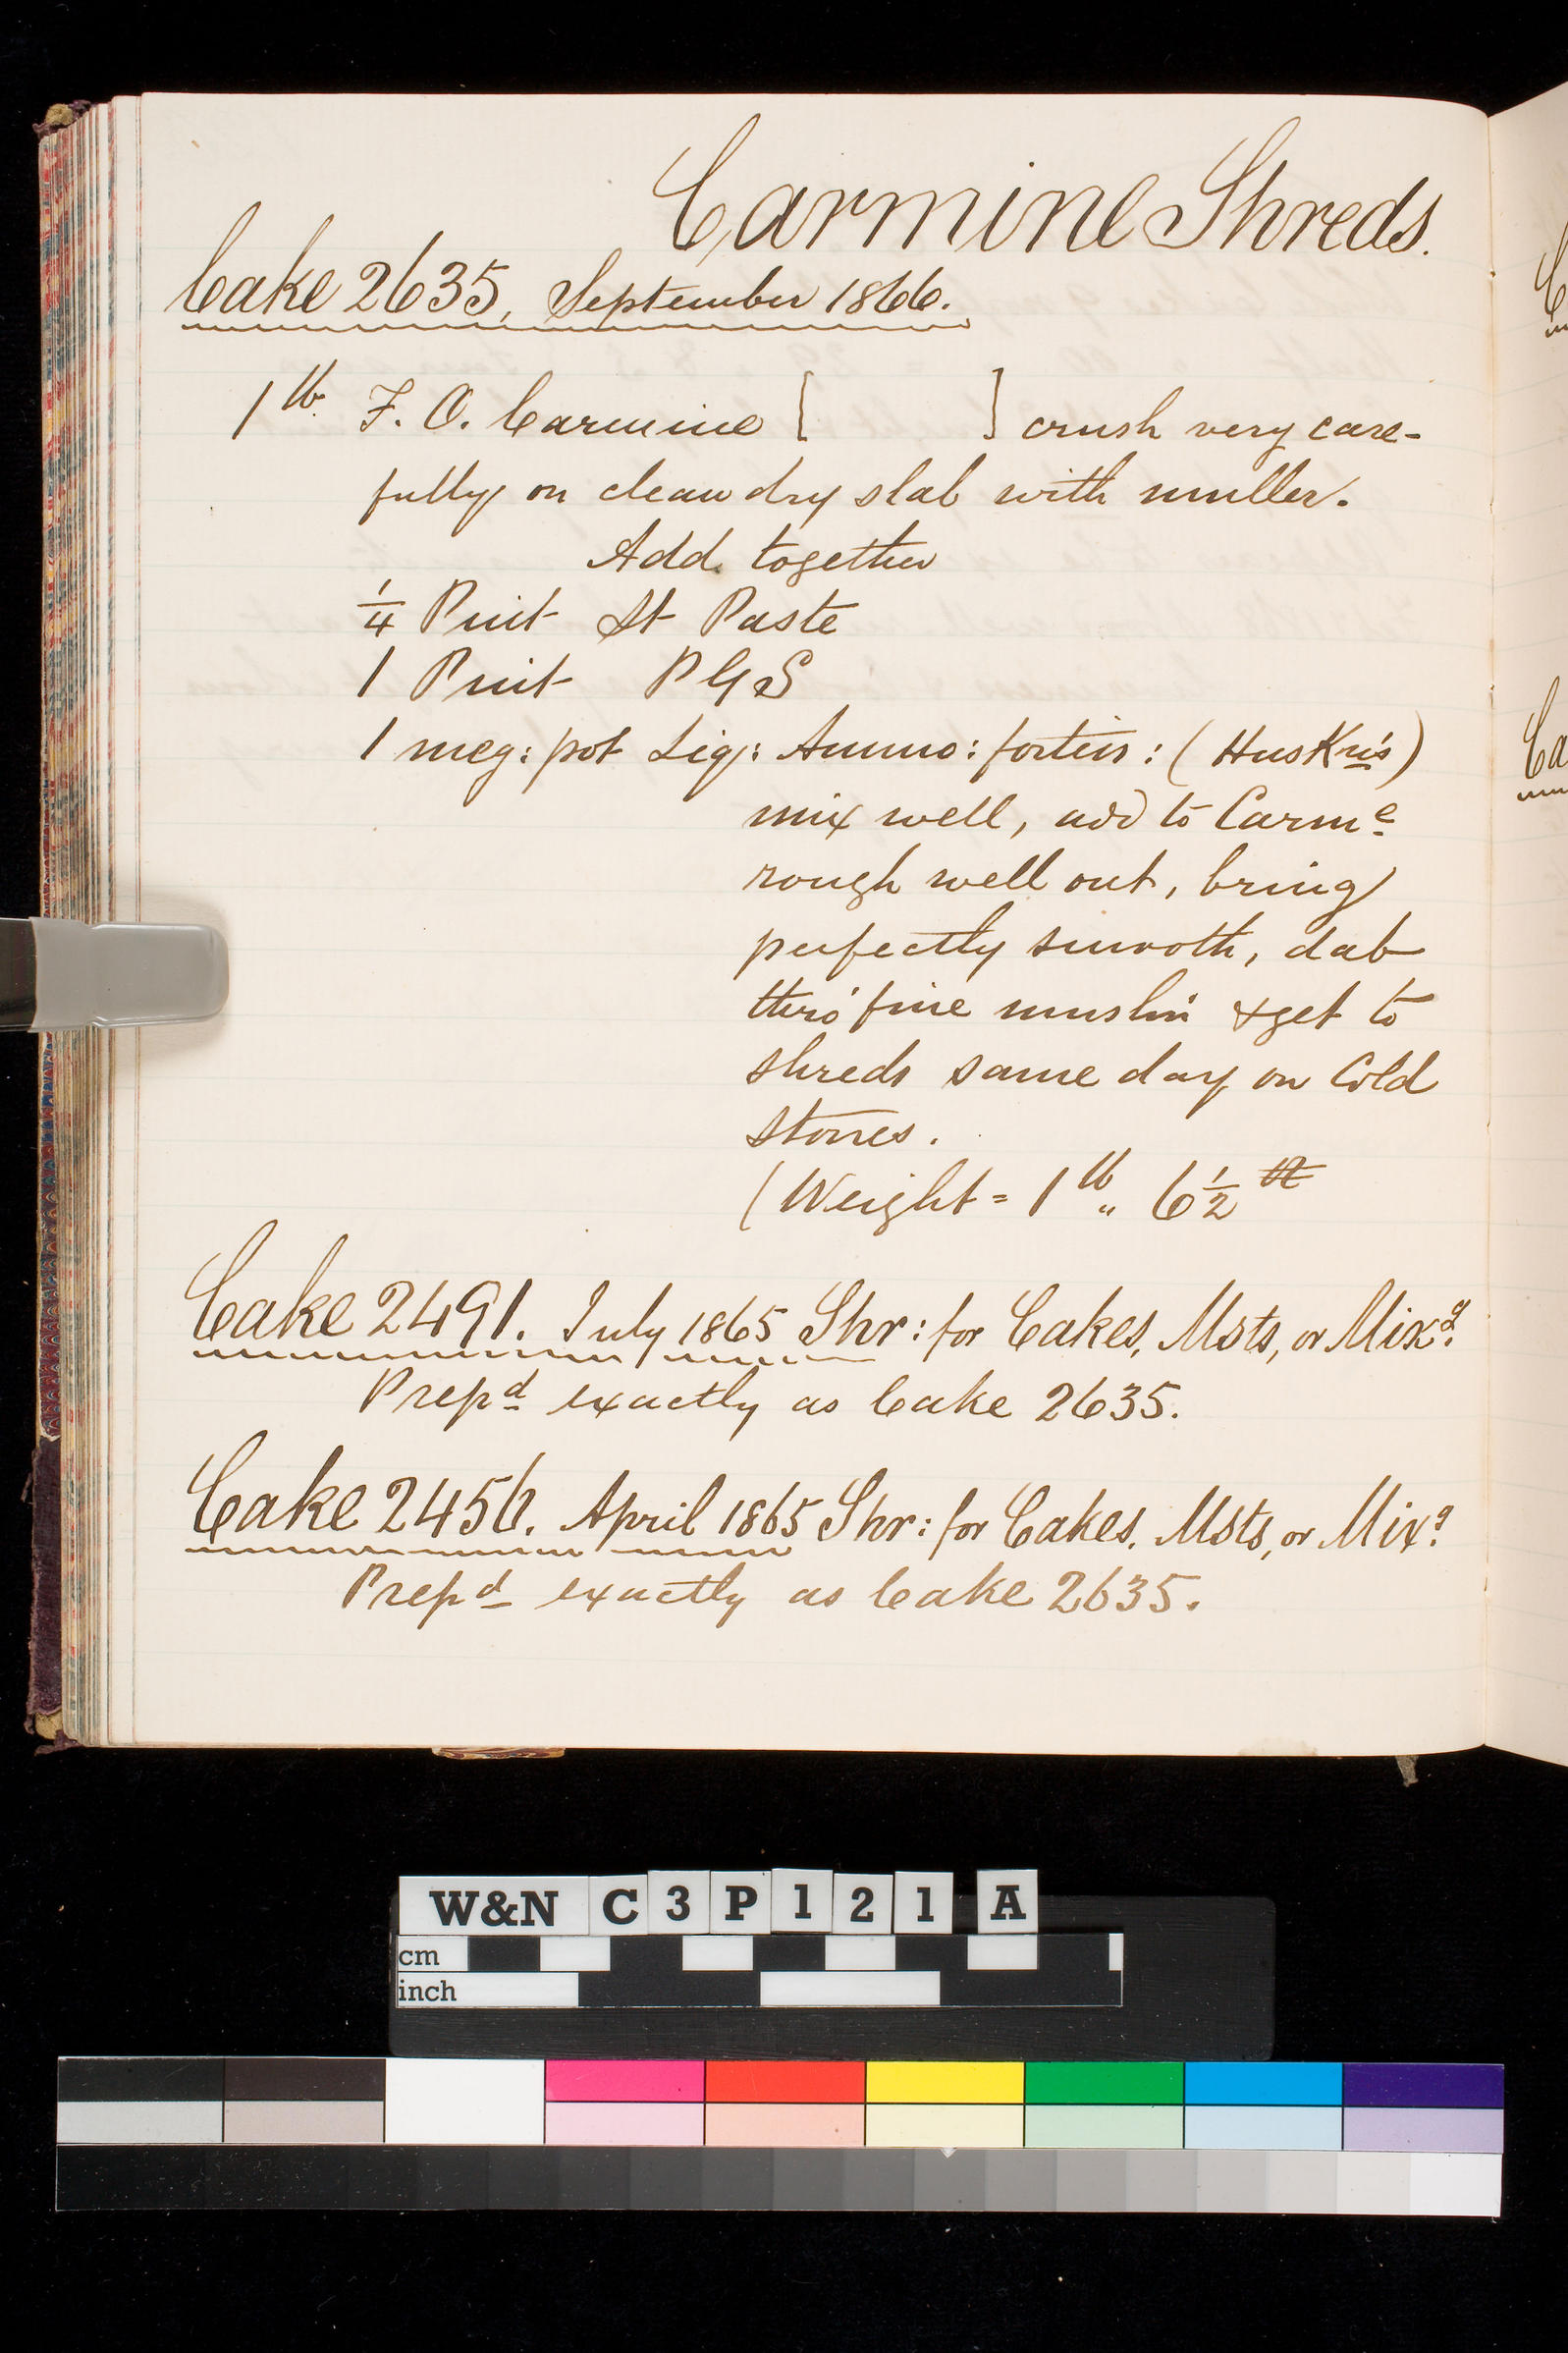 Carmine Shreds.
Cake 2635, September 1866.
1 lb. F. O. Carmine [ ] crush very care-
fully on clean dry slab with muller.
Add together
1/4 Pint St Paste
1 Pint PGS
1 meg: pot Liq: Ammo: fortiss: (Huskn's)
mix well, add to Carmᵉ
rough well out, bring
perfectly smooth, dab
thro' fine muslin & get to
shreds same day on Cold
stones.
(Weight = 1 lb „ 6 1/2
Cake 2491. July 1865 Shr: for Cakes, Msts, or Mixᵍ.
Prepᵈ exactly as Cake 2635.
Cake 2456. April 1865 Shr: for Cakes, Msts, or Mixᵍ.
Prepᵈ exactly as Cake 2635.
W&N C3P121 A
cm
inch